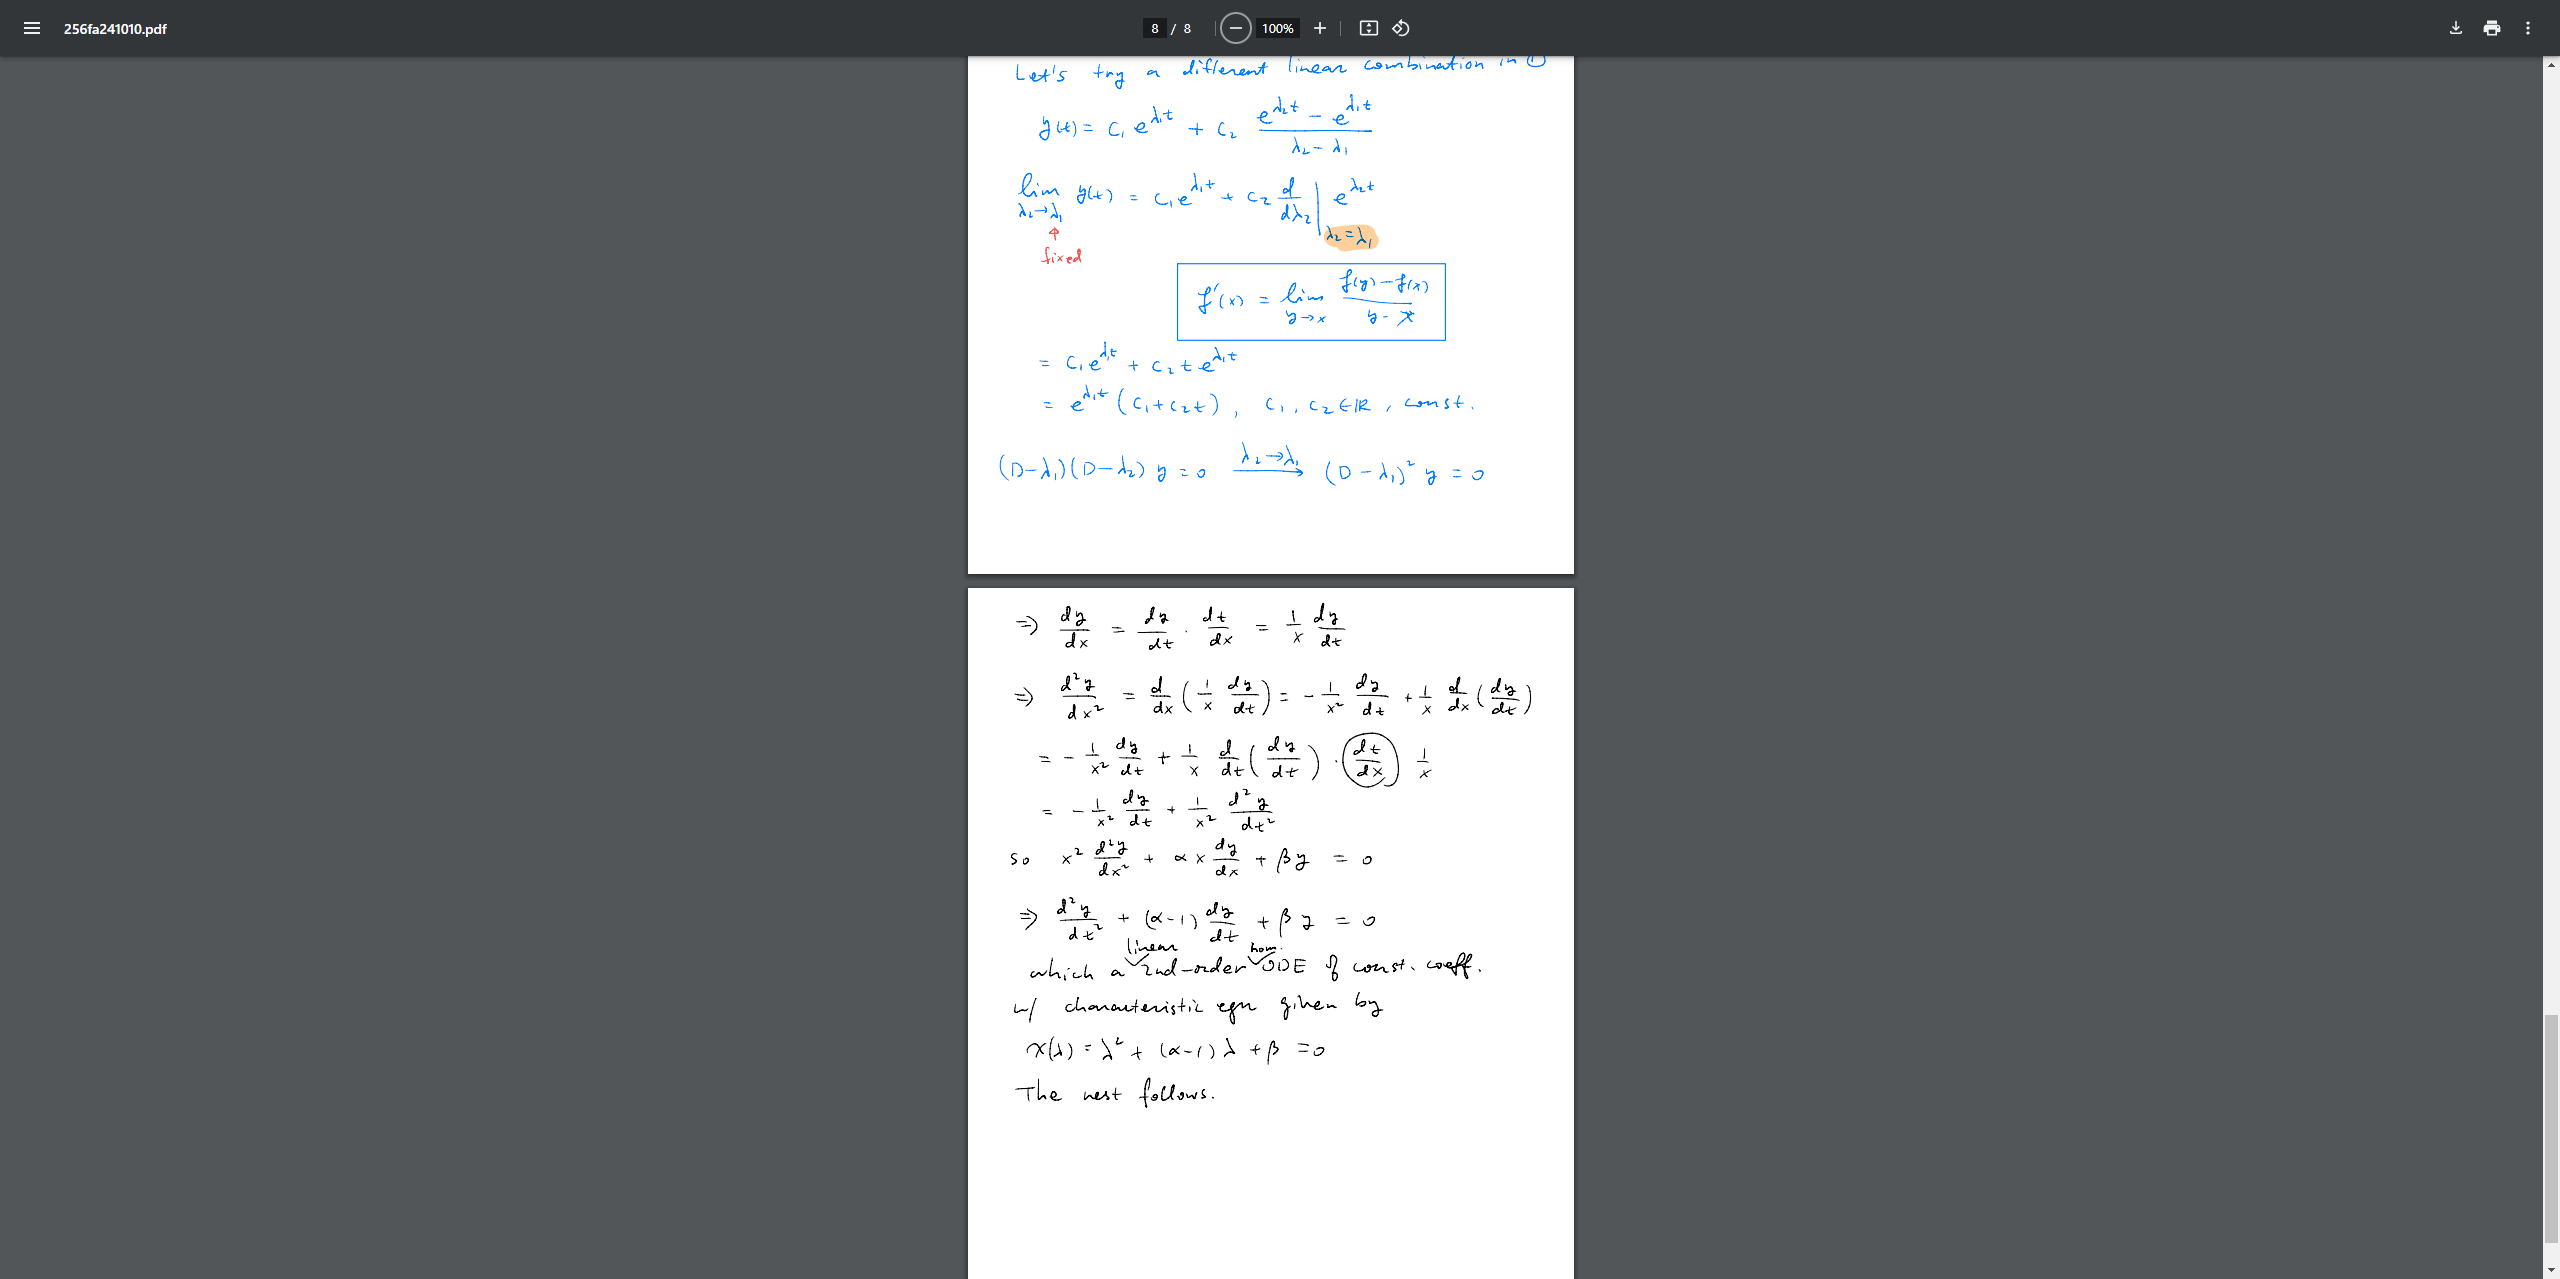 256fa241010.pdf
8 / 8
100%
Let's try a different linear combination in ①
y(t) = c₁ e^{λ₁t} + c₂ \frac{e^{λ₂t} - e^{λ₁t}}{λ₂ - λ₁}
lim_{λ₂→λ₁} y(t) = c₁e^{λ₁t} + c₂ \frac{d}{dλ₂} |_{λ₂=λ₁} e^{λ₂t}
↑
fixed
f'(x) = lim_{y→x} \frac{f(y) - f(x)}{y - x}
= c₁e^{λ₁t} + c₂ t e^{λ₁t}
= e^{λ₁t} (c₁+c₂t), c₁, c₂ ∈ ℝ, const.
(D-λ₁)(D-λ₂) y = 0 \xrightarrow{λ₂→λ₁} (D - λ₁)² y = 0
⇒ \frac{dy}{dx} = \frac{dy}{dt} · \frac{dt}{dx} = \frac{1}{x} \frac{dy}{dt}
⇒ \frac{d²y}{dx²} = \frac{d}{dx} ( \frac{1}{x} \frac{dy}{dt} ) = - \frac{1}{x²} \frac{dy}{dt} + \frac{1}{x} \frac{d}{dx} ( \frac{dy}{dt} )
= - \frac{1}{x²} \frac{dy}{dt} + \frac{1}{x} \frac{d}{dt} ( \frac{dy}{dt} ) · \frac{dt}{dx} \frac{1}{x}
= - \frac{1}{x²} \frac{dy}{dt} + \frac{1}{x²} \frac{d²y}{dt²}
so x² \frac{d²y}{dx²} + αx \frac{dy}{dx} + βy = 0
⇒ \frac{d²y}{dt²} + (α-1) \frac{dy}{dt} + βy = 0
which a linear 2nd-order hom. ODE of const. coeff.
w/ characteristic eqn given by
χ(λ) = λ² + (α-1) λ + β = 0
The rest follows.